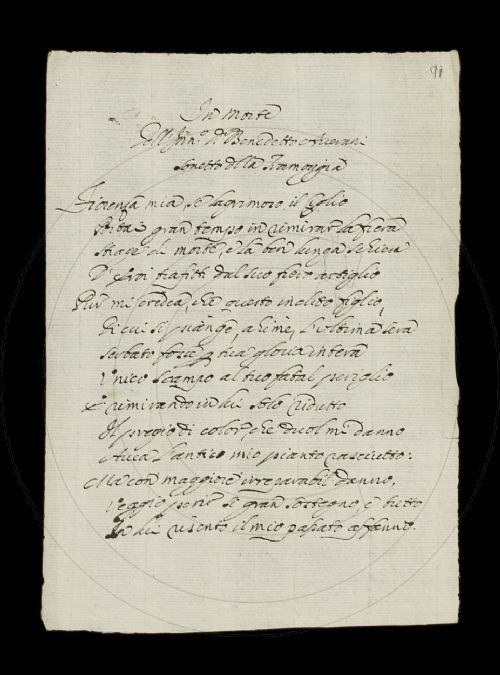 91
In Morte
Dell' Ill.mo D.r Benedetto Averani
Sonetto della Tramoggia
Fiorenza mia, se lagrimoso il ciglio
Serbai gran tempo in rimirar la fiera
Strage di morte, e la ben lunga schiera
D'Eroi trafitti dal suo fiero artiglio
Pur mi credea, che questo inclito figlio,
Di cui si piange, ahime, l'ultima sera
Serbato fosse p tua gloria intera
Unico scampo al tuo fatal periglio
E rimirando in lui solo ridutto
Il pregio di color, che duol mi danno
Avea l'antico mio pianto rasciutto:
Ma con maggiore irreparabil danno,
Veggio perir sì gran sostegno, e tutto
In lui risento il mio passato affanno.